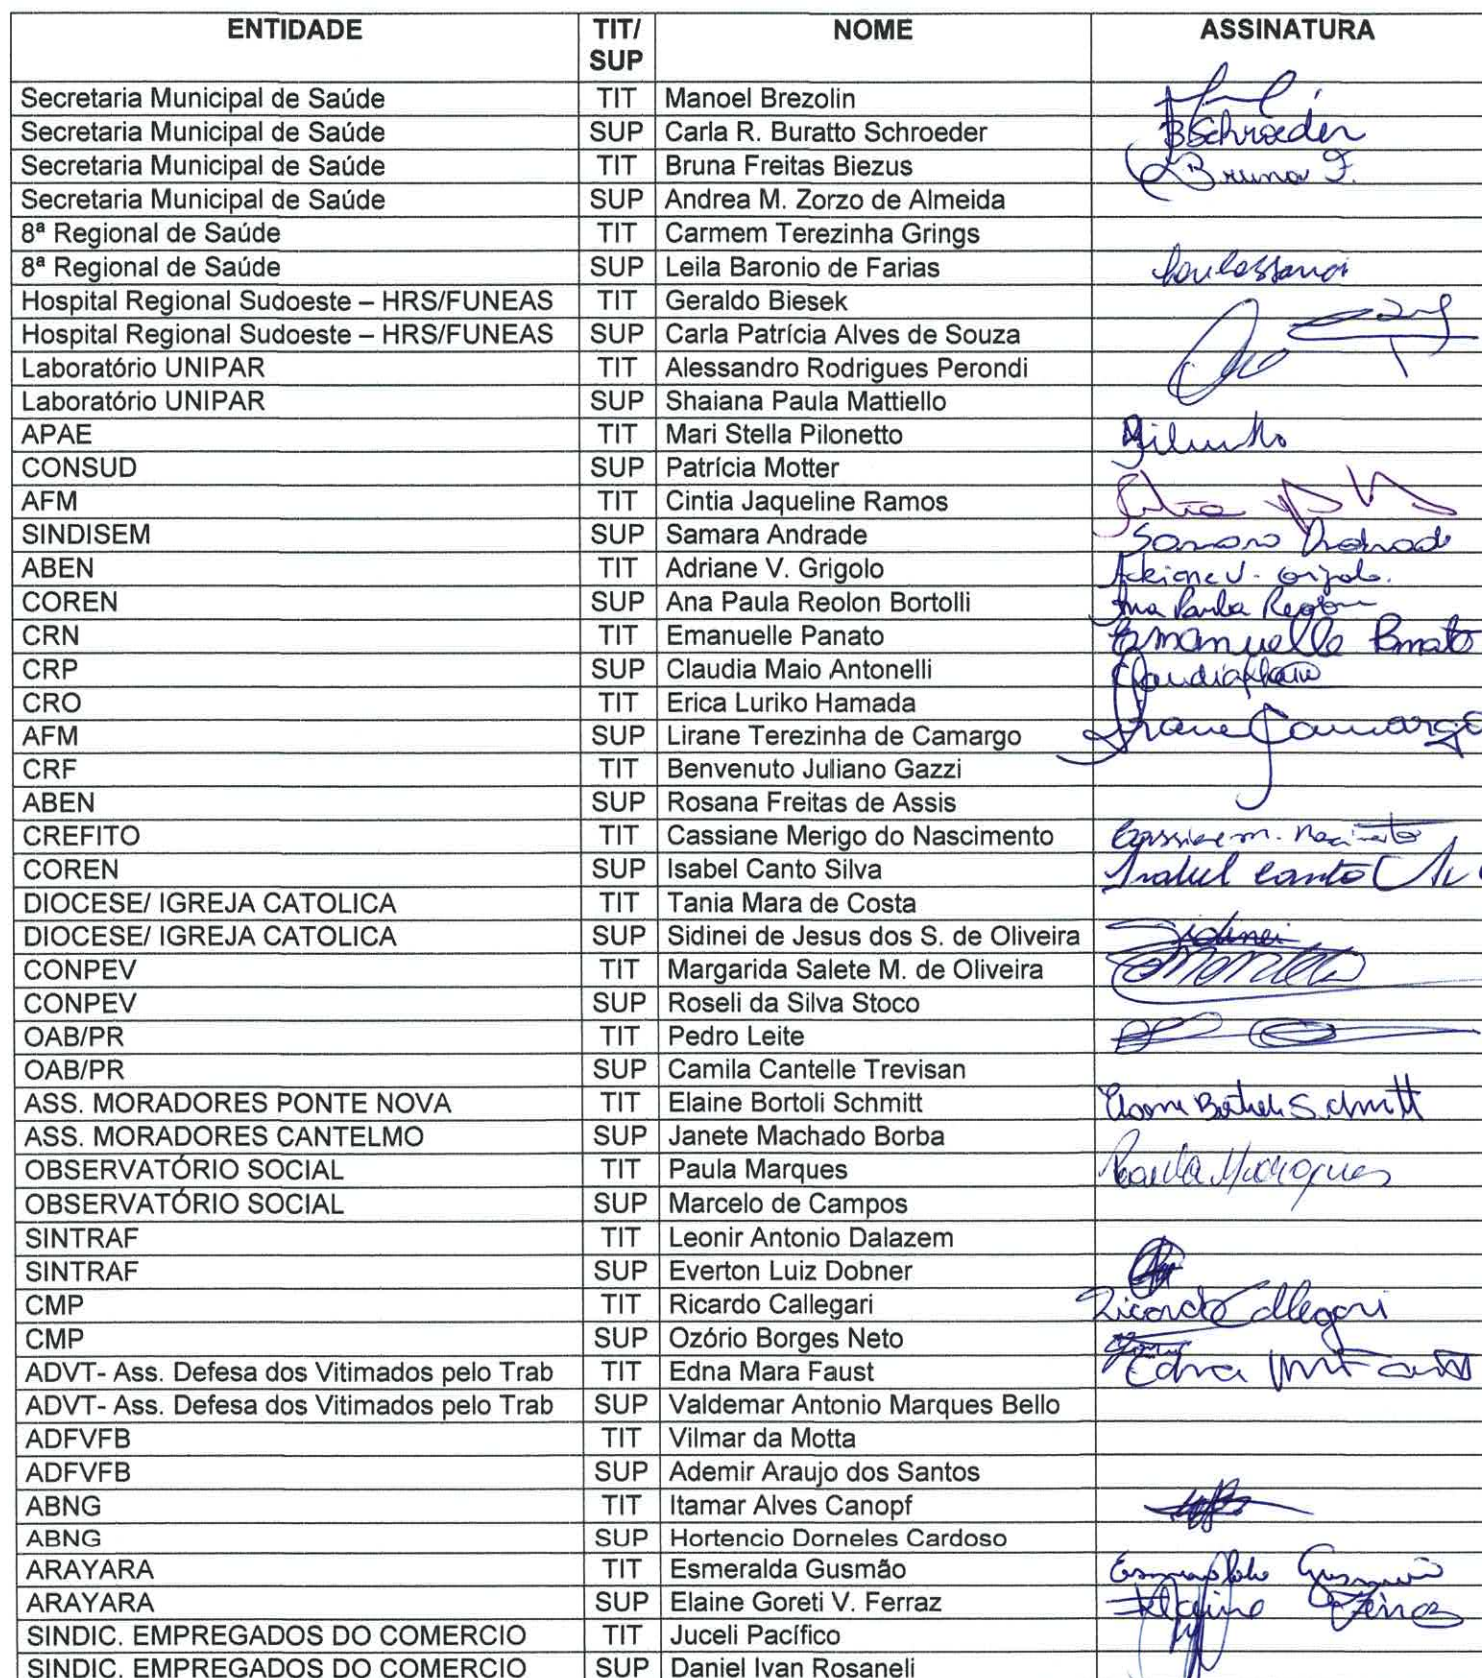 ENTIDADE TIT/ SUP NOME ASSINATURA
Secretaria Municipal de Saúde TIT Manoel Brezolin
Secretaria Municipal de Saúde SUP Carla R. Buratto Schroeder BSchroeder
Secretaria Municipal de Saúde TIT Bruna Freitas Biezus Bruna F.
Secretaria Municipal de Saúde SUP Andrea M. Zorzo de Almeida
8ª Regional de Saúde TIT Carmem Terezinha Grings
8ª Regional de Saúde SUP Leila Baronio de Farias
Hospital Regional Sudoeste – HRS/FUNEAS TIT Geraldo Biesek
Hospital Regional Sudoeste – HRS/FUNEAS SUP Carla Patrícia Alves de Souza
Laboratório UNIPAR TIT Alessandro Rodrigues Perondi
Laboratório UNIPAR SUP Shaiana Paula Mattiello
APAE TIT Mari Stella Pilonetto
CONSUD SUP Patrícia Motter
AFM TIT Cintia Jaqueline Ramos
SINDISEM SUP Samara Andrade Samara Andrade
ABEN TIT Adriane V. Grigolo Adriane V. Grigolo.
COREN SUP Ana Paula Reolon Bortolli Ana Paula Reolon
CRN TIT Emanuelle Panato Emanuelle Panato
CRP SUP Claudia Maio Antonelli Claudia Maio
CRO TIT Erica Luriko Hamada
AFM SUP Lirane Terezinha de Camargo Lirane Camargo
CRF TIT Benvenuto Juliano Gazzi
ABEN SUP Rosana Freitas de Assis
CREFITO TIT Cassiane Merigo do Nascimento Cassiane m. Nascimento
COREN SUP Isabel Canto Silva Isabel Canto
DIOCESE/ IGREJA CATOLICA TIT Tania Mara de Costa
DIOCESE/ IGREJA CATOLICA SUP Sidinei de Jesus dos S. de Oliveira Sidinei
CONPEV TIT Margarida Salete M. de Oliveira
CONPEV SUP Roseli da Silva Stoco
OAB/PR TIT Pedro Leite
OAB/PR SUP Camila Cantelle Trevisan
ASS. MORADORES PONTE NOVA TIT Elaine Bortoli Schmitt Elaine Bortoli Schmitt
ASS. MORADORES CANTELMO SUP Janete Machado Borba
OBSERVATÓRIO SOCIAL TIT Paula Marques Paula Marques
OBSERVATÓRIO SOCIAL SUP Marcelo de Campos
SINTRAF TIT Leonir Antonio Dalazem
SINTRAF SUP Everton Luiz Dobner
CMP TIT Ricardo Callegari Ricardo Callegari
CMP SUP Ozório Borges Neto
ADVT- Ass. Defesa dos Vitimados pelo Trab TIT Edna Mara Faust Edna
ADVT- Ass. Defesa dos Vitimados pelo Trab SUP Valdemar Antonio Marques Bello
ADFVFB TIT Vilmar da Motta
ADFVFB SUP Ademir Araujo dos Santos
ABNG TIT Itamar Alves Canopf
ABNG SUP Hortencio Dorneles Cardoso
ARAYARA TIT Esmeralda Gusmão Esmeralda Gusmão
ARAYARA SUP Elaine Goreti V. Ferraz Elaine Ferraz
SINDIC. EMPREGADOS DO COMERCIO TIT Juceli Pacífico
SINDIC. EMPREGADOS DO COMERCIO SUP Daniel Ivan Rosaneli